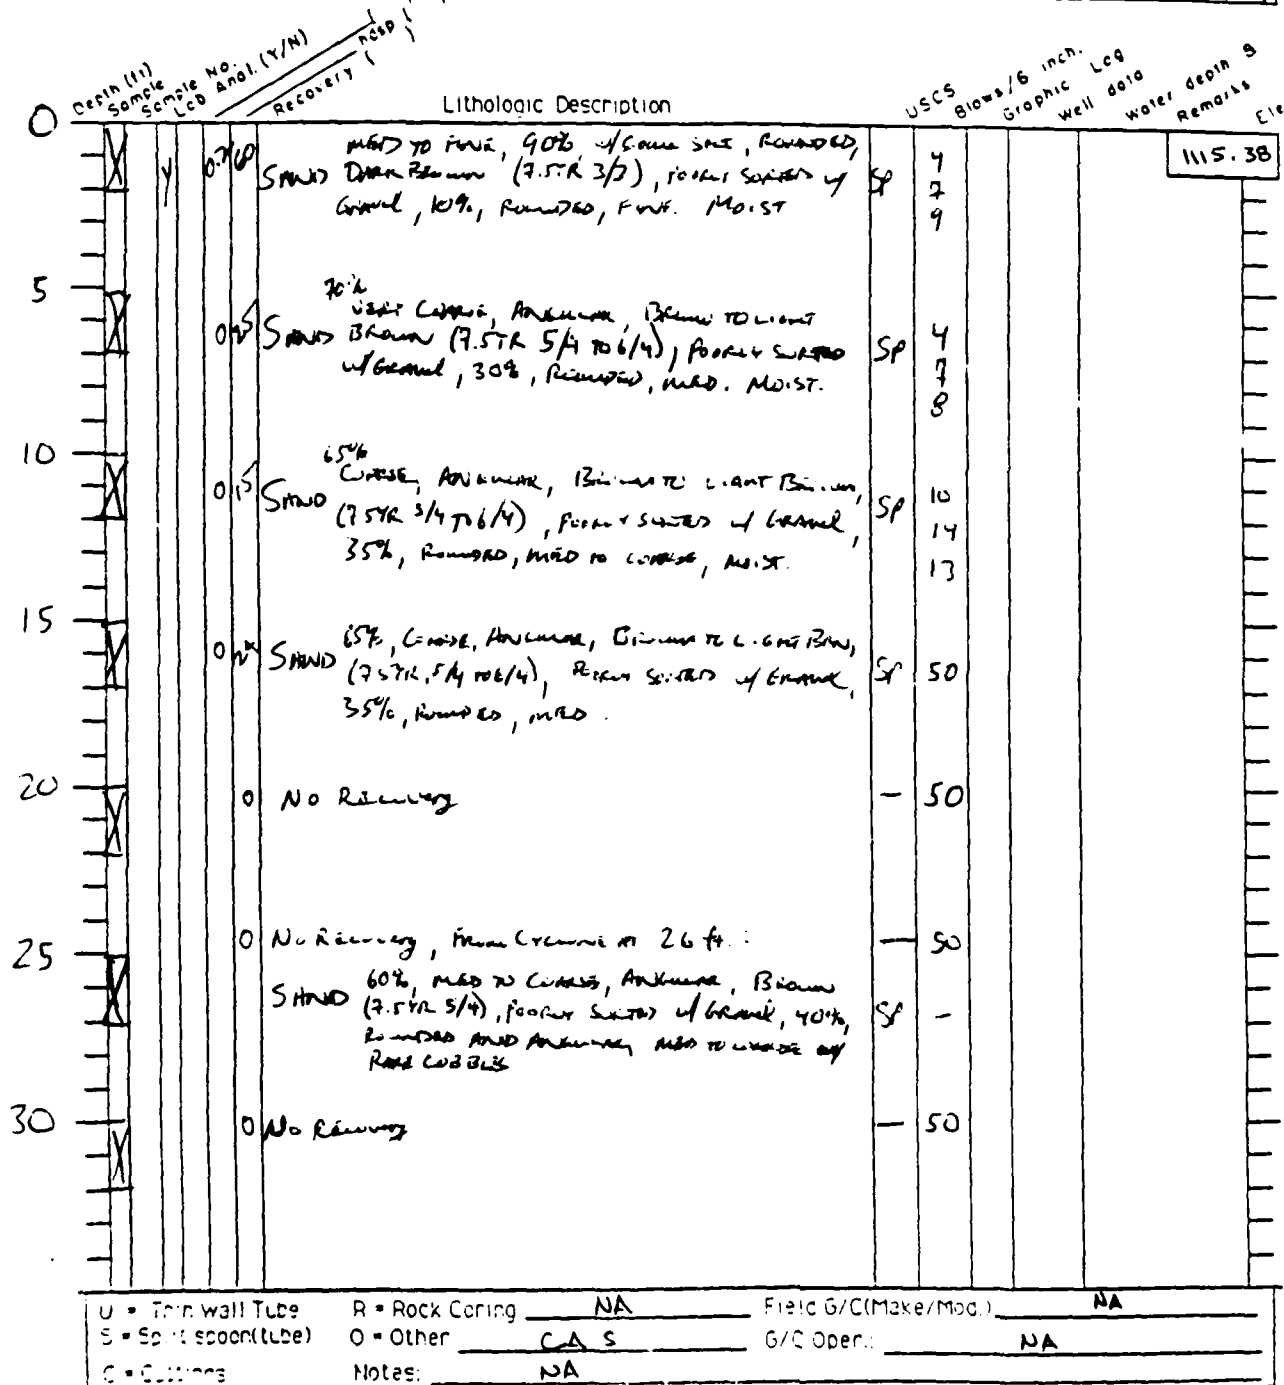 Depth (ft)
Sample
Sample No.
Anal. (Y/N)
Recovery (
Lithologic Description
USCS
Blows/6 inch.
Graphic Log
Well data
Water depth &
Remarks
Ele
0
Y
MED TO FINE, 90%, w/ SOME SILT, ROUNDED,
SAND DARK BROWN (7.5YR 3/3), POORLY SORTED w/
GRAVEL, 10%, ROUNDED, FINE. MOIST
SP
4
7
9
1115.38
5
70%
VERY COARSE, ANGULAR, BROWN TO LIGHT
0
SAND BROWN (7.5YR 5/4 TO 6/4), POORLY SORTED
w/ GRAVEL, 30%, ROUNDED, MED. MOIST.
SP
4
7
8
10
65%
COARSE, ANGULAR, BROWN TO LIGHT BROWN,
0
SAND (7.5YR 5/4 TO 6/4), POORLY SORTED w/ GRAVEL,
35%, ROUNDED, MED TO COARSE, MOIST.
SP
10
14
13
15
0
SAND 65%, COARSE, ANGULAR, BROWN TO LIGHT BRN,
(7.5YR, 5/4 TO 6/4), POORLY SORTED w/ GRAVEL,
35%, ROUNDED, MED.
SP 50
20
0 No Recovery — 50
0 No Recovery, FROM CYCLONE AT 26 ft.:
— 50
25
SAND 60%, MED TO COARSE, ANGULAR, BROWN
(7.5YR 5/4), POORLY SORTED w/ GRAVEL, 40%,
ROUNDED AND ANGULAR, MED TO COARSE w/
RARE COBBLES
SP –
30
0 No Recovery — 50
U = Thin Wall Tube R = Rock Coring NA Field G/C(Make/Mod.) NA
S = Split spoon(tube) O = Other CAS G/C Oper.: NA
C = Cuttings Notes: NA